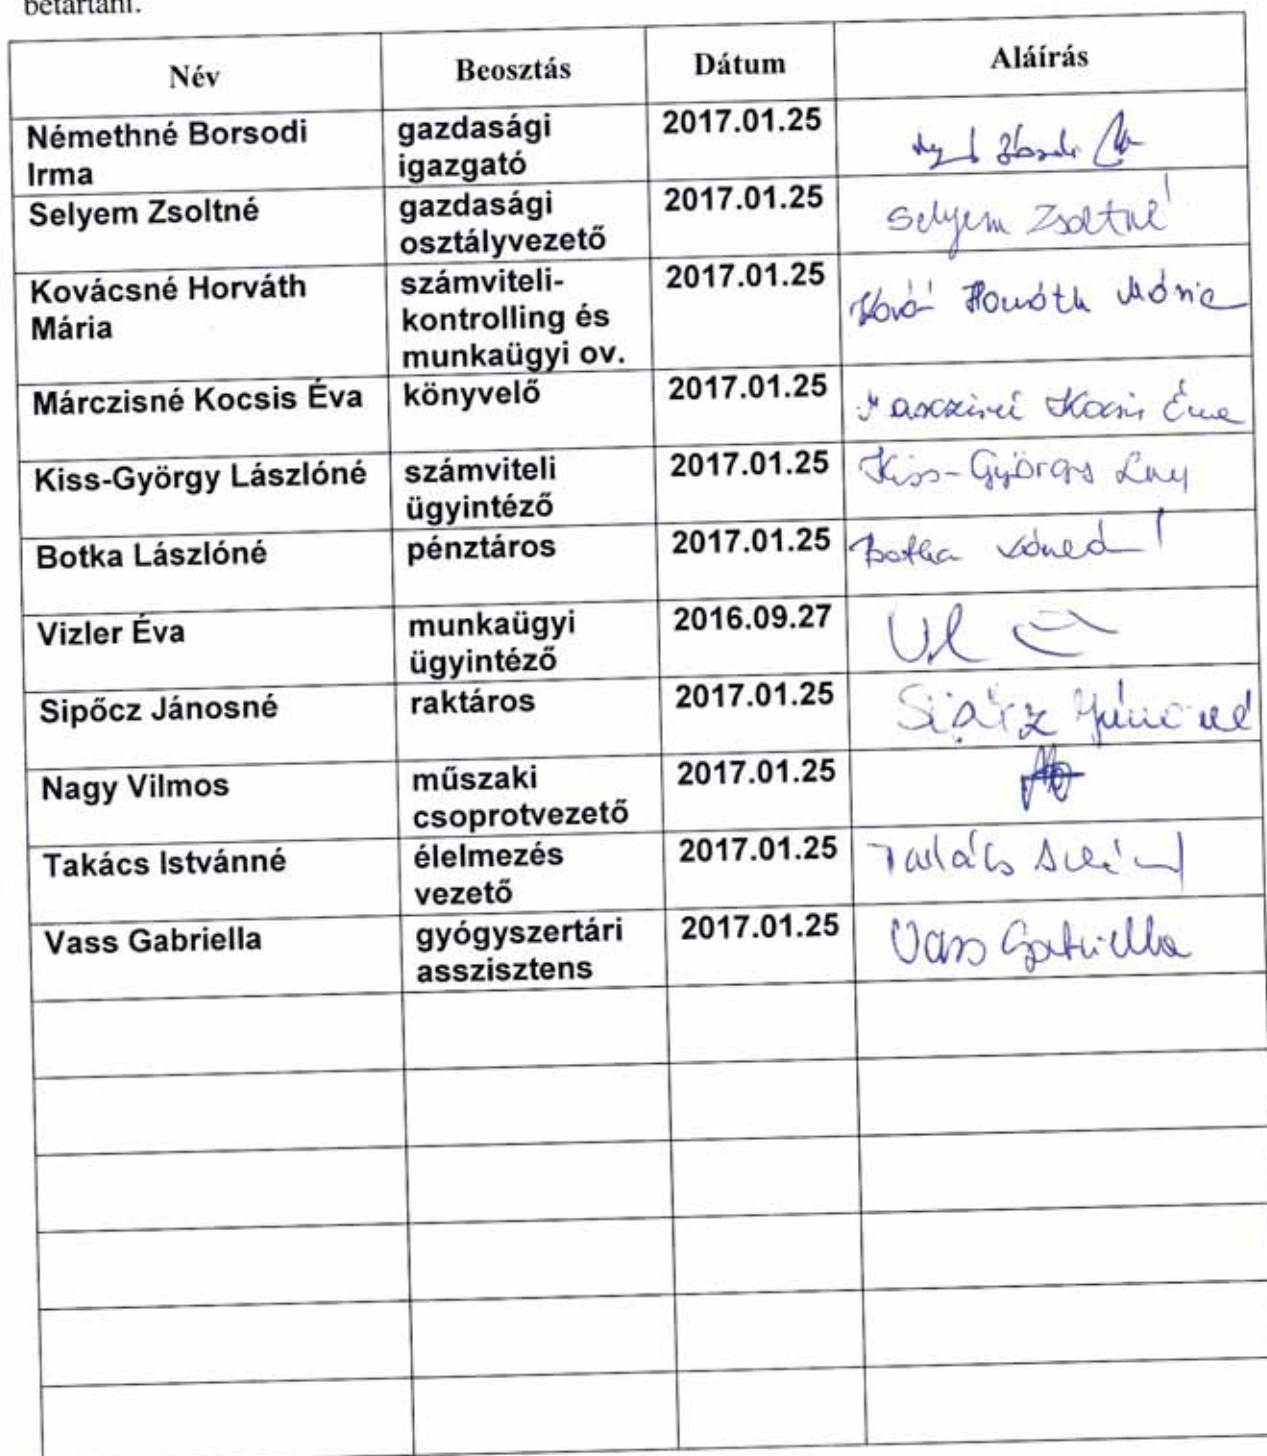 betartani.
Név Beosztás Dátum Aláírás
Némethné Borsodi Irma gazdasági igazgató 2017.01.25
Selyem Zsoltné gazdasági osztályvezető 2017.01.25 Selyem Zsoltné
Kovácsné Horváth Mária számviteli-kontrolling és munkaügyi ov. 2017.01.25 Horváth Mária
Márczisné Kocsis Éva könyvelő 2017.01.25 Kocsis Éva
Kiss-György Lászlóné számviteli ügyintéző 2017.01.25 Kiss-György
Botka Lászlóné pénztáros 2017.01.25 Botka
Vizler Éva munkaügyi ügyintéző 2016.09.27
Sipőcz Jánosné raktáros 2017.01.25
Nagy Vilmos műszaki csoprotvezető 2017.01.25
Takács Istvánné élelmezés vezető 2017.01.25 Takács
Vass Gabriella gyógyszertári asszisztens 2017.01.25 Vass Gabriella